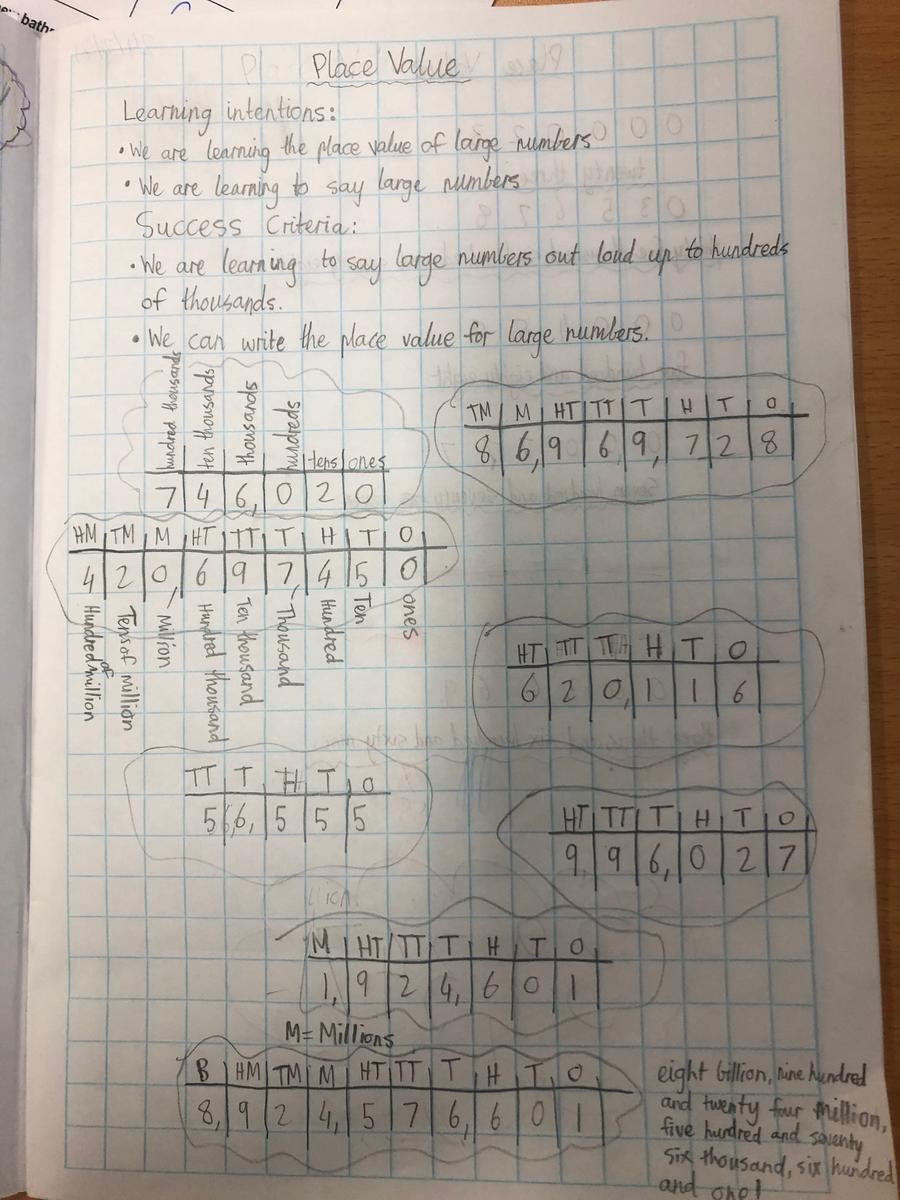 Place Value
Learning intentions:
• We are learning the place value of large numbers
• We are learning to say large numbers
Success Criteria:
• We are learning to say large numbers out loud up to hundreds
of thousands.
• We can write the place value for large numbers.
hundred thousands ten thousands thousands hundreds tens ones
7 4 6, 0 2 0
TM M HT TT T H T O
8 6, 9 6 9, 7 2 8
HM TM M HT TT T H T O
4 2 0, 6 9 7, 4 5 0
Hundred of million Tens of million Million Hundred thousand Ten thousand Thousand Hundred Ten ones
HT TT TH H T O
6 2 0, 1 1 6
TT T H T O
5 6, 5 5 5
HT TT T H T O
9, 9 6, 0 2 7
M HT TT T H T O
1, 9 2 4, 6 0 1
M = Millions
B HM TM M HT TT T H T O
8, 9 2 4, 5 7 6, 6 0 1
eight billion, nine hundred
and twenty four million,
five hundred and seventy
six thousand, six hundred
and one!